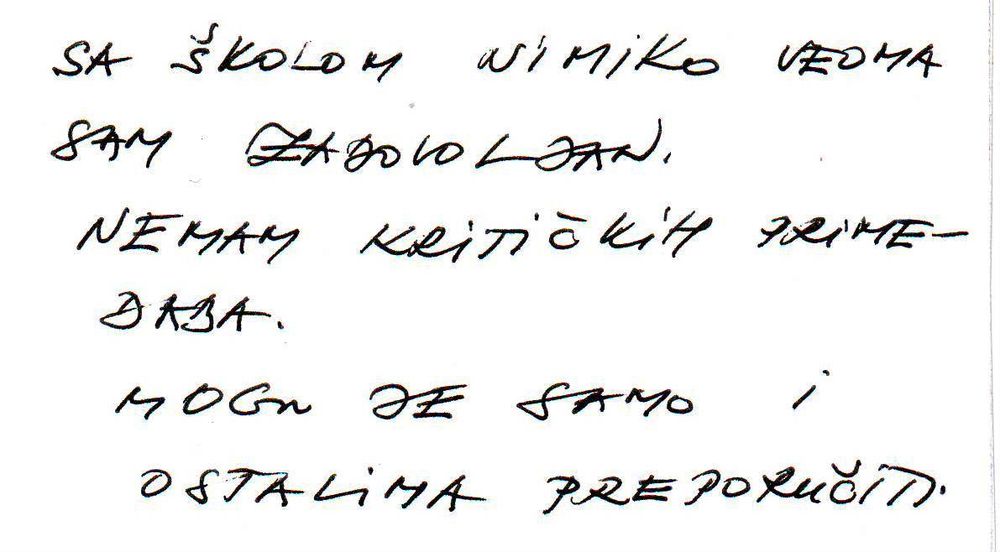 SA ŠKOLOM NIMIKO VEOMA
SAM ZADOVOLJAN.
NEMAM KRITIČKIH PRIME-
DABA.
MOGU JE SAMO I
OSTALIMA PREPORUČITI.